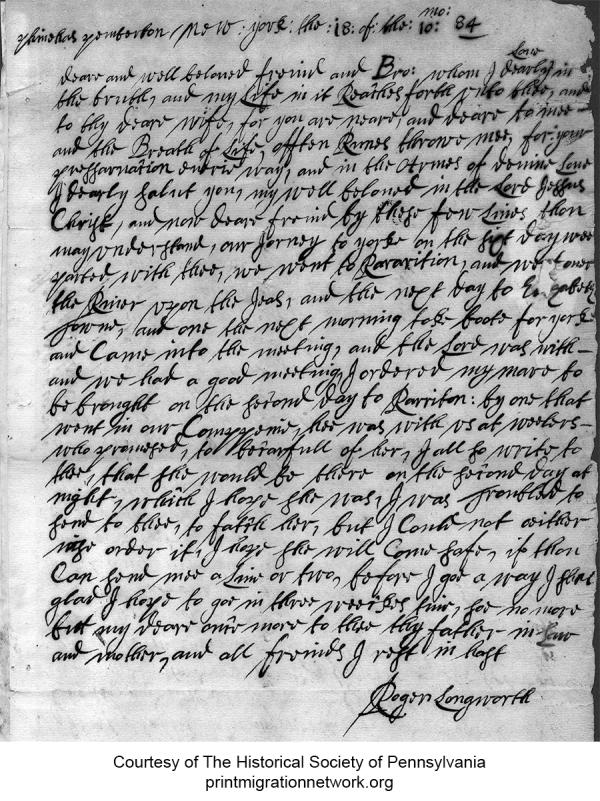 phinehas pemberton / New: york: the: 18: of: the: mo: 10: 84
deare and well beloved freind and Bro: whom J dearly Love in
the truth, and my Life in it Reaches forth unto thee, and
to thy deare wife, for you are neare, and deare to mee –
and the Breath of Life, offten Runes throwe mee, for your
presharnation everie way, and in the Armes of devine Love
J dearly salut you, my well beloved in the Lord Jessus
Christ, and now deare freind by these few Lines thou
may understand, our Jorney to yorke on the first day wee
parted with thee, we went to Rararition, and went over
the River upon the Jeas, and the next day to Elizabeth
towne, and one the next morning toke boote for yorke
and Came into the meeting, and the Lord was with –
and we had a good meeting, J ordered my mare to
be brought on the second day to Rarriton: by one that
went in our Comppenie, hee was with us at weelers –
who promesed, to be carfull of her, J all so write to
thee, that she would be there on the second day at
night, which J hope she was, J was troubled to
send to thee, to fatch her, but J Could not eeither
wise order it, J hope she will Come safe, if thou
Can send mee a Line or two, before J goe a way J shall
glad J hope to goe in three weeckes time, soe no more
but my deare once more to thee thy father in Law
and mother, and all freinds J rest in hast
Roger Longworth
Courtesy of The Historical Society of Pennsylvania
printmigrationnetwork.org